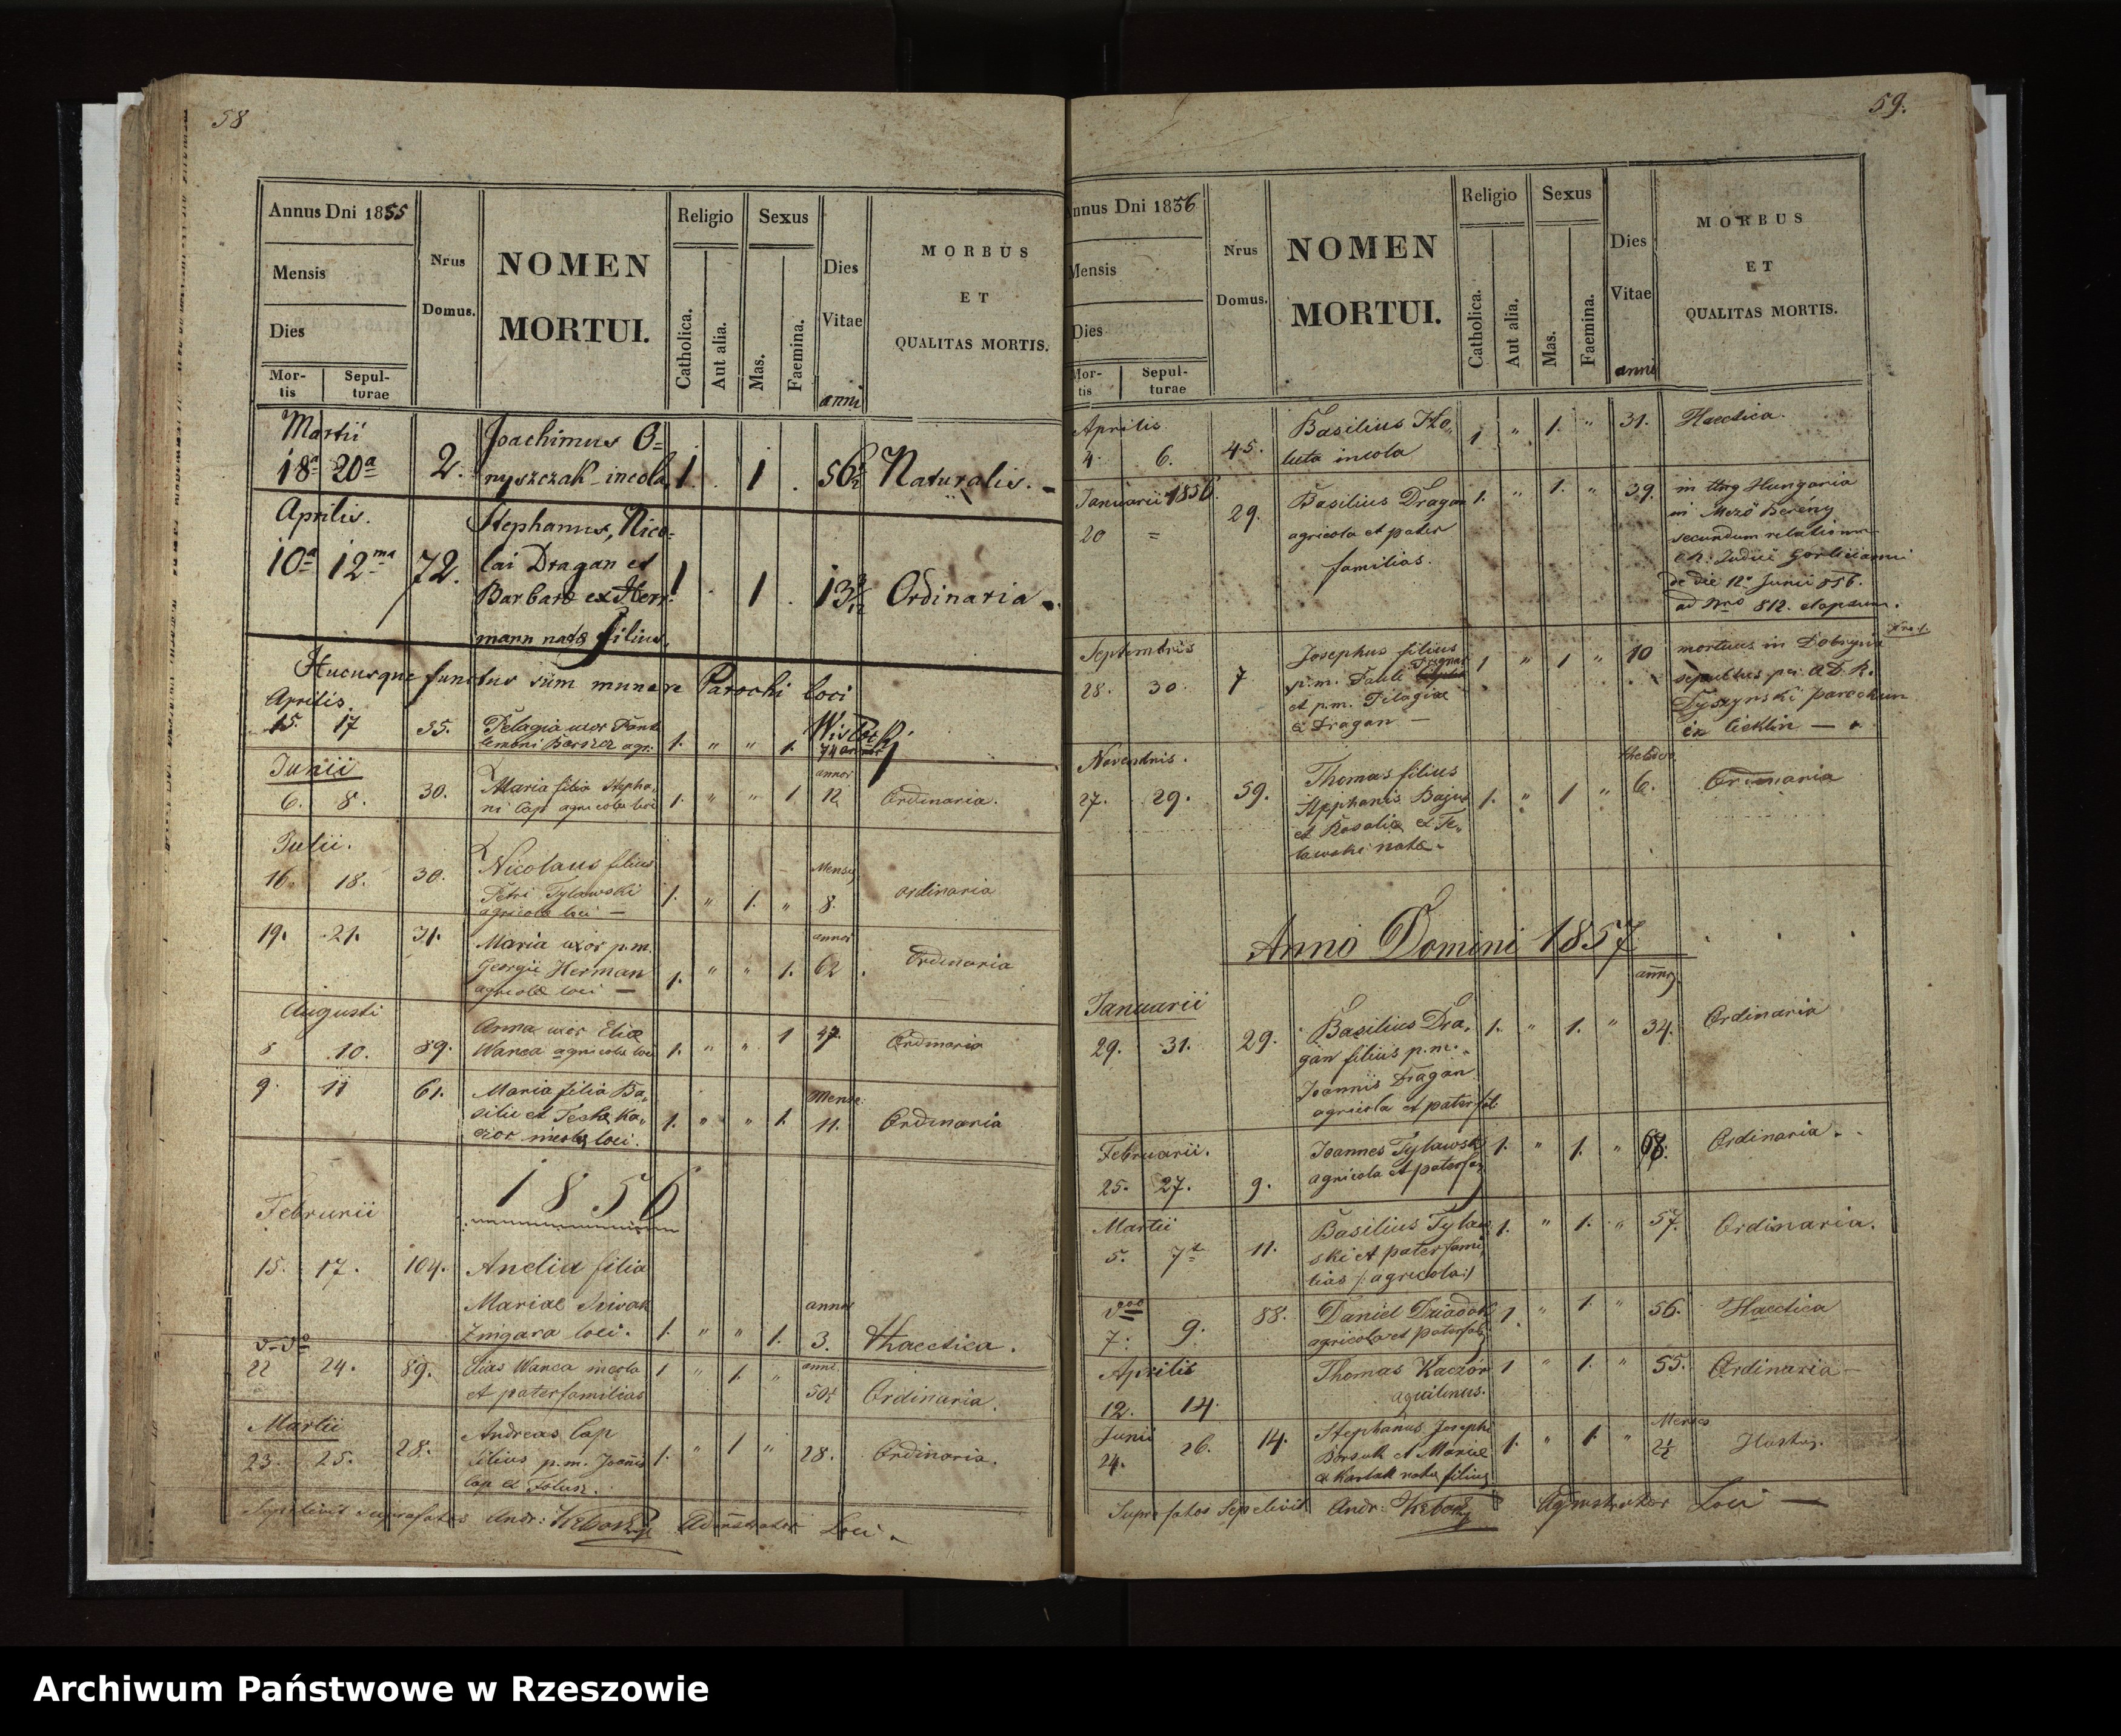 58
Annus Dni 1855
Mensis
Dies
Mor-
tis
Sepul-
turae
Nrus
Domus.
NOMEN
MORTUI.
Religio
Catholica.
Aut alia.
Sexus
Mas.
Faemina.
Dies
Vitae
anni
MORBUS
ET
QUALITAS MORTIS.
Martii
Joachimus O=
18a 20a 2. nyszczak incola 1. 1 56 Naturalis.
Aprilis.
Stephanus, Nico=
10a 12ma 72. lai Dragan et
Barbara ex Herr= 1 1 13 Ordinaria
mann nata filius.
Hucusque functus sum munere Parochi loci
Aprilis.
15. 17 35. Pelagia uxor
agr. 1. " " 1. 74
Junii
6. 8. 30. Maria filia Stepha
ni Cap agricola loci 1. " " 1 12 Ordinaria.
annor
Julii.
16. 18. 30. Nicolaus filius
Petri Tylawski 1. " 1. " 8. ordinaria
agricola loci —
19. 21. 31. Maria uxor p.m.
Georgii Herman 1. " " 1. 62 Ordinaria
agricola loci —
Augusti
8 10. 89. Anna uxor Eliae
Wanca agricola loci 1. " " 1 47. Ordinaria
9. 11 61. Maria filia Ba„
silii et Teclae Ka„ 1. " " 1. 11. Ordinaria
czor incola loci.
1856
Februrii
15. 17. 104. Anelia filia
Mariae Siwak
Zingara loci. 1. " " 1. 3. Haectica.
22 24. 89. Elias Wanca incola 1 " 1. "
et paterfamilias 50½ Ordinaria.
Martii
23. 25. 28. Andreas Cap
filius p.m. Joannis 1. " 1 " 28. Ordinaria.
Cap et
Sepelivit suprafatos Andr: Administrator Loci
59.
Annus Dni 1856
Mensis
Dies
Mor-
tis
Sepul-
turae
Nrus
Domus.
NOMEN
MORTUI.
Religio
Catholica.
Aut alia.
Sexus
Mas.
Faemina.
Dies
Vitae
anni
MORBUS
ET
QUALITAS MORTIS.
Aprilis
4. 6. 45. Basilius Ho„ 1 " 1. " 31. Haectica.
luta incola
Januarii 1856.
20 = 29. Basilius Dragan 1. " 1. " 39. in Hungaria
agricola et pater in Mezö Berény
familias. secundum relationem
Judicii Gorlicianii
de die 12a Junii 856.
ad Nro 812. elapsum.
Septembris
28. 30. 7 Josephus filius 1 " 1 " 10 mortuus in Dobrynia
p.m. Pauli sepultus per A.D.R.
et p.m. Pelagiae Tyszynski parochum
e Dragan — in Cieklin —
Novembris.
27. 29. 59. Thomas filius
Stephanis Bajus 1. " 1 " 6. Ordinaria
et Rosalia
lawski nata.
Anno Domini 1857
Januarii
29. 31. 29. Basilius Dra„ 1. " 1. " 34. Ordinaria
gan filius p.m.
Joannis Dragan
agricola et paterfal.
Februarii.
25. 27. 9. Joannes Tylawski 1. " 1. " 68. Ordinaria.
agricola et paterfa
Martii
5. 7. 11. Basilius Tylaw 1. " 1. " 57. Ordinaria.
ski et pater fami
lias /: agricola:/
7. 9. 88. Daniel Dziadok 1. " 1. " 56. Haectica
agricola et paterfal
Aprilis
12. 14. Thomas Kaczor 1 " 1. " 55. Ordinaria
aquilinus.
Junii Menses
24. 26. 14. Stephanus Josephi 1. " 1. " 2½
Borsuk et Mariae
e nata filius
Suprafatos Sepelivit Andr: Loci —
Archiwum Państwowe w Rzeszowie